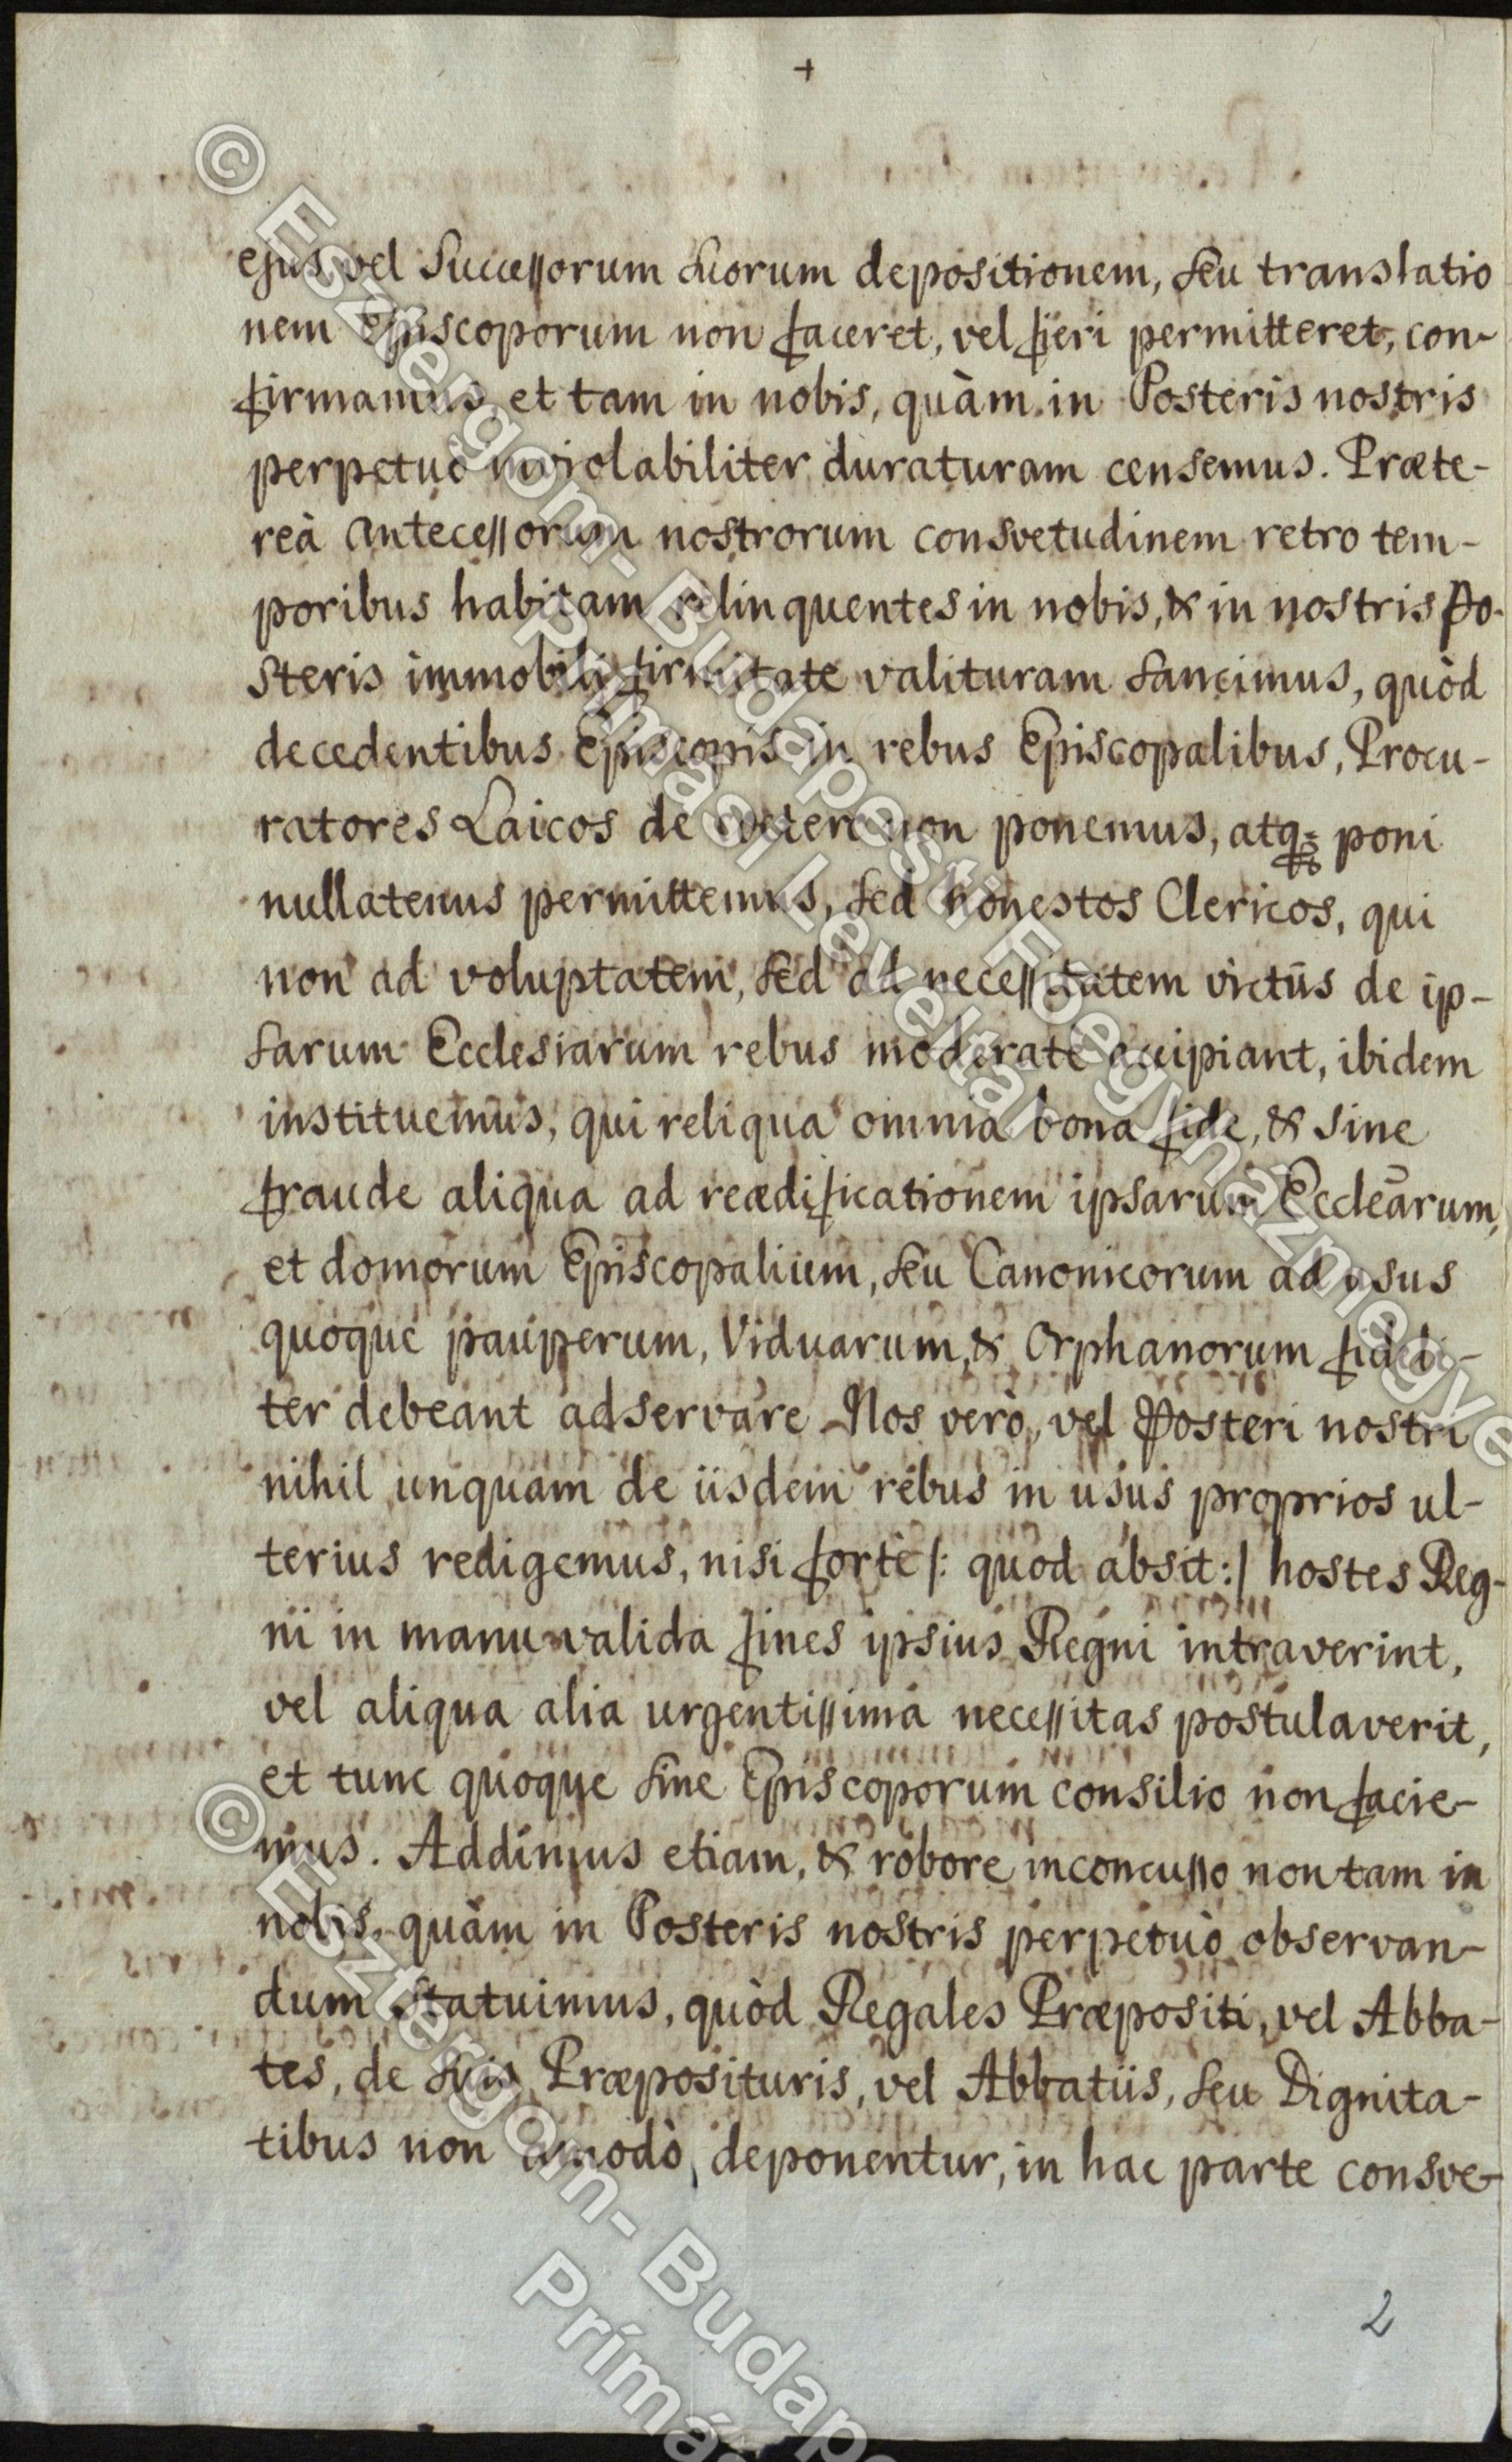 +
ejus vel Successorum suorum depositionem, seu translatio
nem Episcoporum non faceret, vel fieri permitteret, con-
firmamus, et tam in nobis, quàm in Posteris nostris
perpetuò inviolabiliter duraturam censemus. Præte-
reà Antecessorum nostrorum consvetudinem retro tem-
poribus habitam relinquentes in nobis, & in nostris Po-
steris immobili firmitate valituram sancimus, quòd
decedentibus Episcopis in rebus Episcopalibus, Procu-
ratores Laicos de cætero non ponemus, atq; poni
nullatenus permittemus, sed honestos Clericos, qui
non ad voluptatem, sed ad necessitatem victûs de ip-
sarum Ecclesiarum rebus moderatè accipiant, ibidem
instituemus, qui reliqua omnia bona fide, & sine
fraude aliqua ad reædificationem ipsarum Eccleārum,
et domorum Episcopalium, seu Canonicorum ad usus
quoque pauperum, Viduarum, & Orphanorum fideli-
ter debeant adservare Nos verò, vel Posteri nostri
nihil unquam de iisdem rebus in usus proprios ul-
terius redigemus, nisi fortè /: quod absit :/ hostes Reg-
ni in manu valida fines ipsius Regni intraverint,
vel aliqua alia urgentissima necessitas postulaverit,
et tunc quoque sine Episcoporum consilio non facie-
mus. Addimus etiam, & robore inconcusso non tam in
nobis, quàm in Posteris nostris perpetuò observan-
dum statuimus, quòd Regales Præpositi, vel Abba-
tes, de suis Præposituris, vel Abbatiis, seu Dignita-
tibus non amodò deponentur, in hac parte consve-
2
© Esztergom-Budapesti Főegyházmegye
Prímási Levéltár
© Esztergom-Budap
Prímás